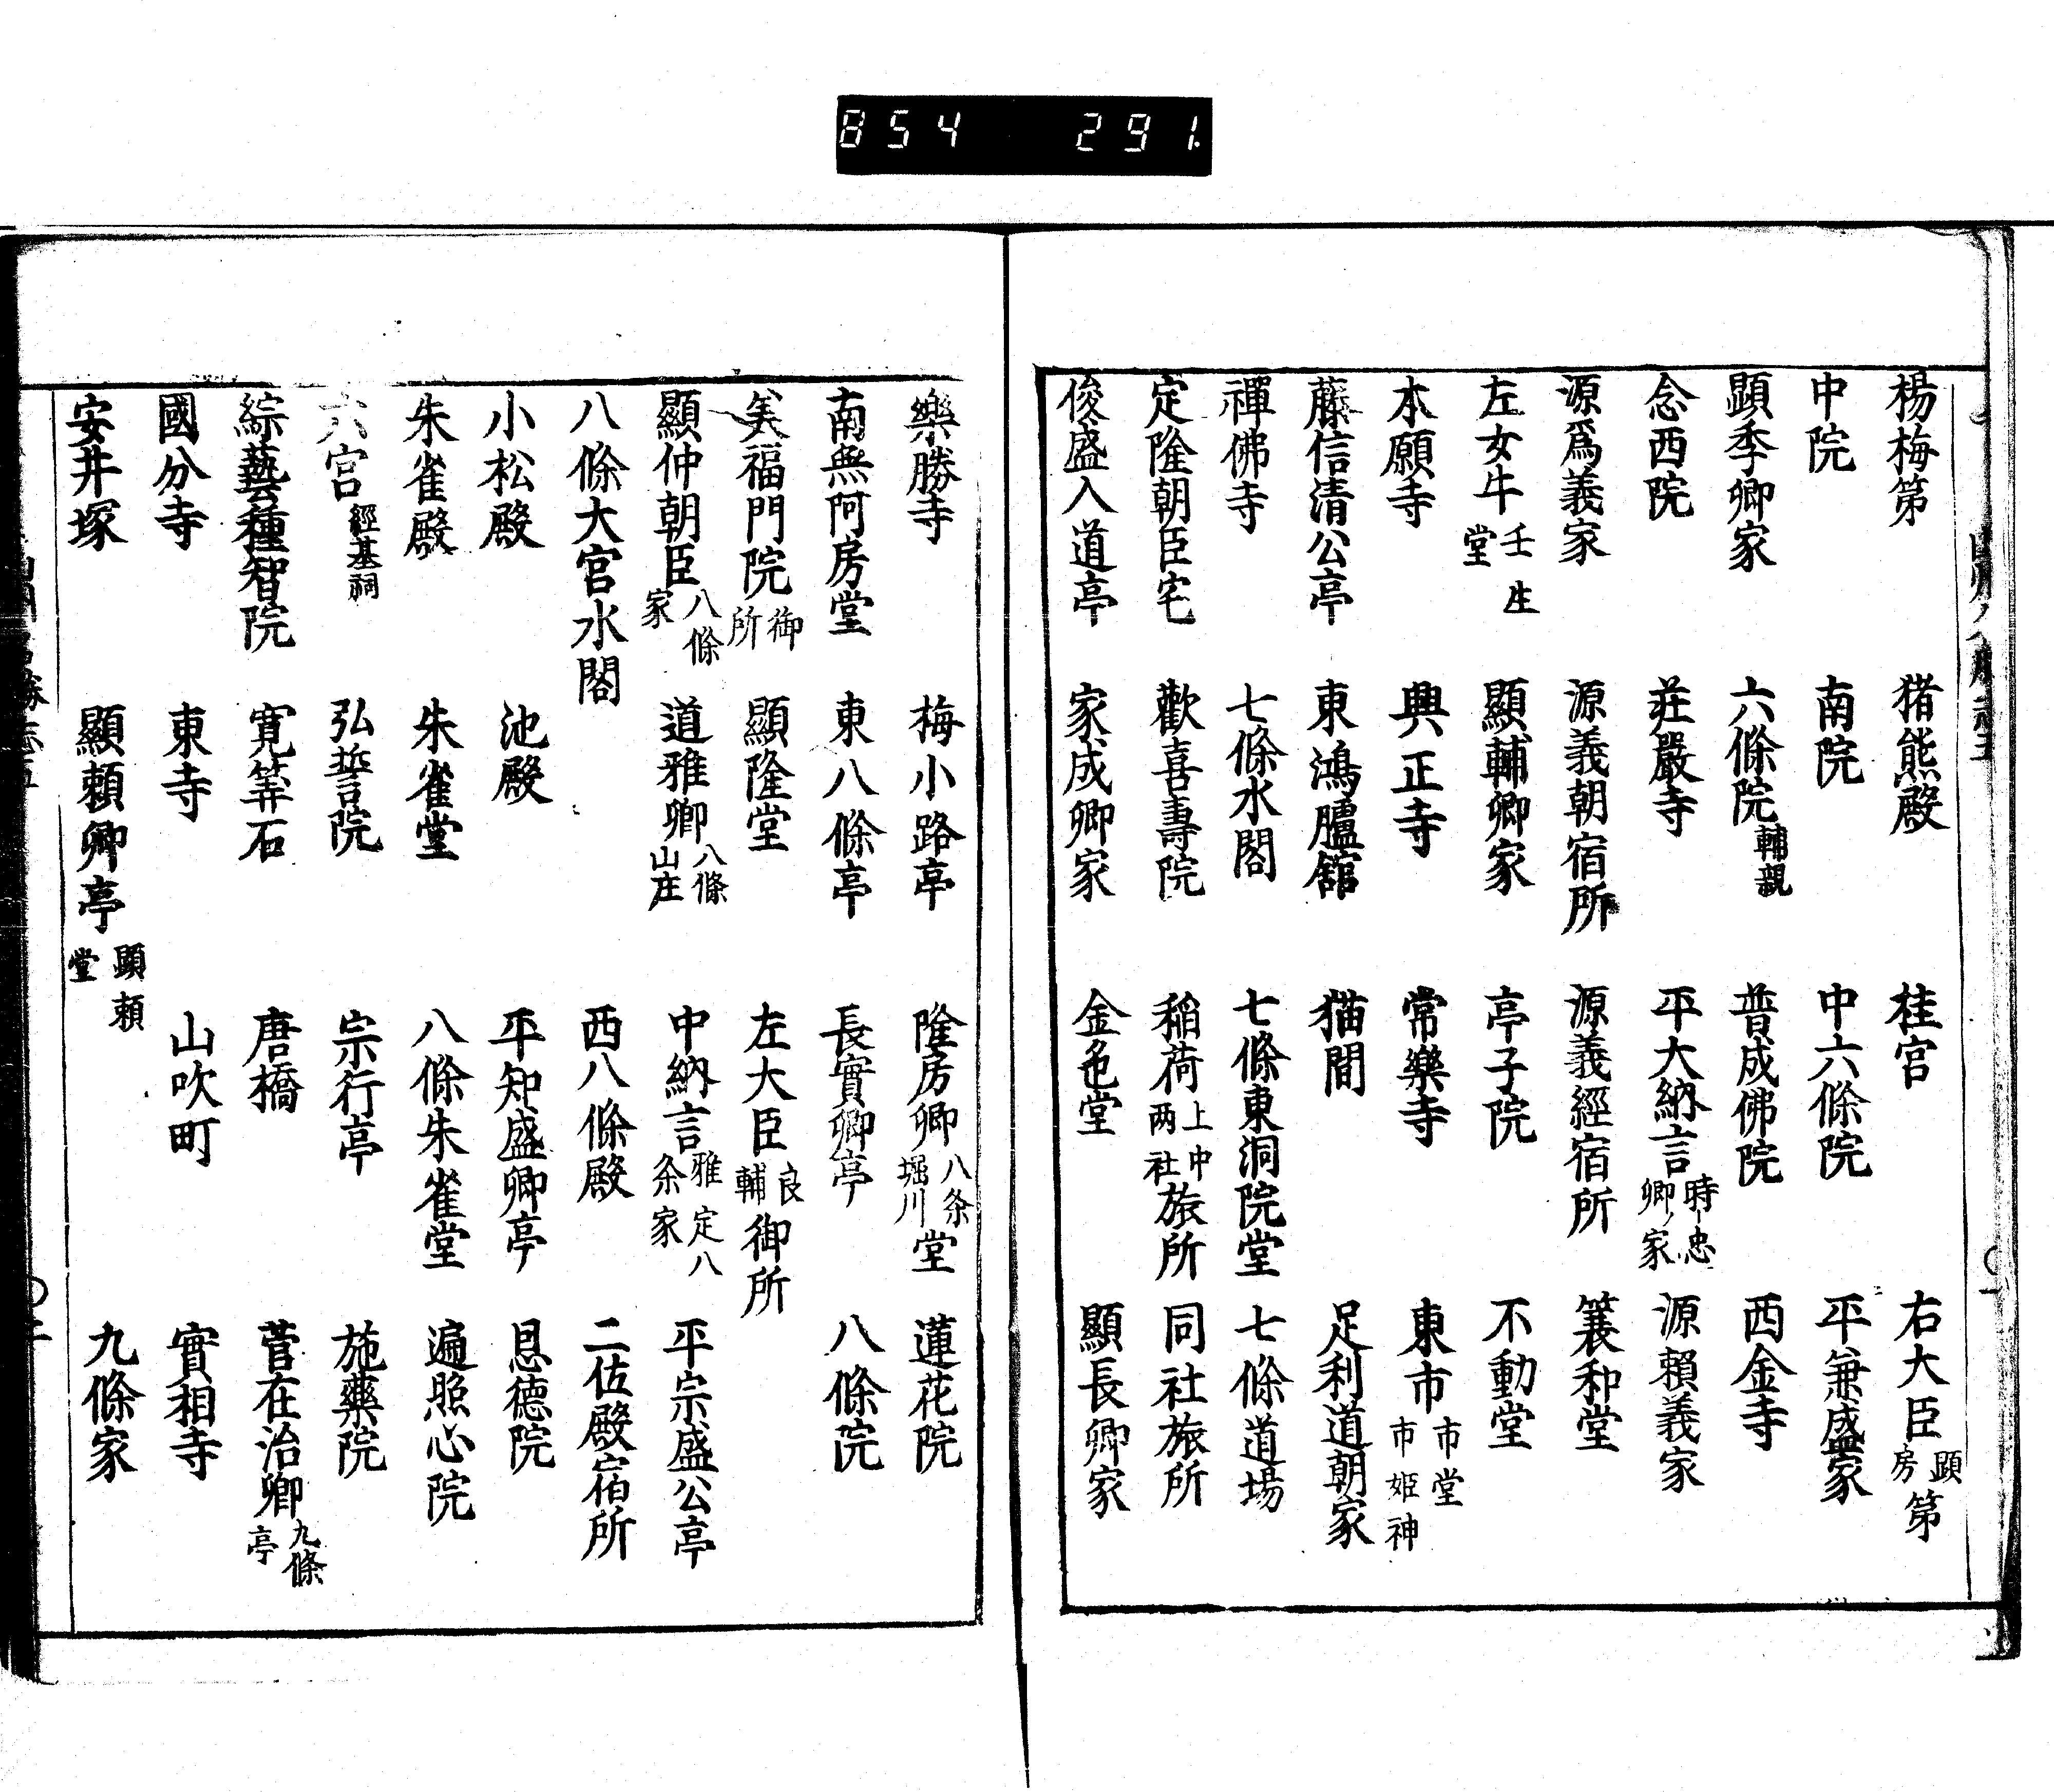 854 291
楊梅第 猪熊殿 桂宮 右大臣顕房第
中院 南院 中六條院 平兼盛家
顕季卿家 六條院輔親 普成佛院 西金寺
念西院 荘嚴寺 平大納言時忠卿ノ家 源頼義家
源爲義家 源義朝宿所 源義經宿所 簑和堂
左女牛壬生堂 顯輔卿家 亭子院 不動堂
本願寺 興正寺 常樂寺 東市市堂市姫神
藤信清公亭 東鴻臚舘 猫間 足利道朝家
禪佛寺 七條水閣 七條東洞院堂 七條道場
定隆朝臣宅 歡喜壽院 稲荷上中両社旅所 同社旅所
俊盛入道亭 家成卿家 金色堂 顯長卿家
樂勝寺 梅小路亭 隆房卿八条堀川堂 蓮花院
南無阿房堂 東八條亭 長實卿亭 八條院
美福門院御所 顯隆堂 左大臣良輔御所
顯仲朝臣八條家 道雅卿八條山庄 中納言雅定八条家 平宗盛公亭
八條大宮水閣 西八條殿 二位殿宿所
小松殿 池殿 平知盛卿亭 恩德院
朱雀殿 朱雀堂 八條朱雀堂 遍照心院
六宮經基祠 弘誓院 宗行亭 施藥院
綜藝種智院 寛筭石 唐橋 菅在治卿九條亭
國分寺 東寺 山吹町 實相寺
安井塚 顯頼卿亭顕頼堂 九條家